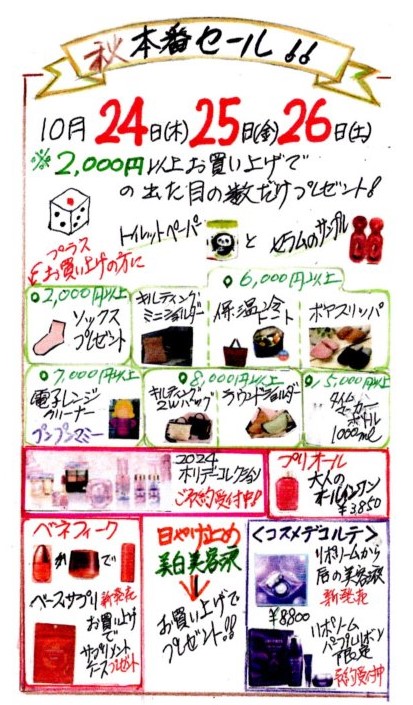 秋本番セール!!
10月24日(木)25日(金)26日(土)
※2,000円以上お買い上げで
の出た目の数だけプレゼント!
トイレットペーパー
と
セラムのサンプル
プラス
お買い上げの方に
2,000円以上
ソックス
プレゼント
キルティング
ミニショルダー
6,000円以上
保温冷
ボアスリッパ
7,000円以上
電子レンジ
クリーナー
8,000円以上
キルティング
2Wバッグ
ラウンドショルダー
5,000円以上
タイム
マーカー
ボトル
1000ml
2024
ホリデーコレクション
ご予約受付中!
プリオール
大人の
オールインワン
¥3,850
ベネフィーク
か
で
ベースサプリ新発売
お買い上げ
で
サプリメント
ケースプレゼント
日やけ止め
美白美容液
お買い上げで
プレゼント!!
<コスメデコルテ>
リポソームから
唇の美容液
新発売
¥8800
リポソーム
パープルリボン
限定
予約受付中